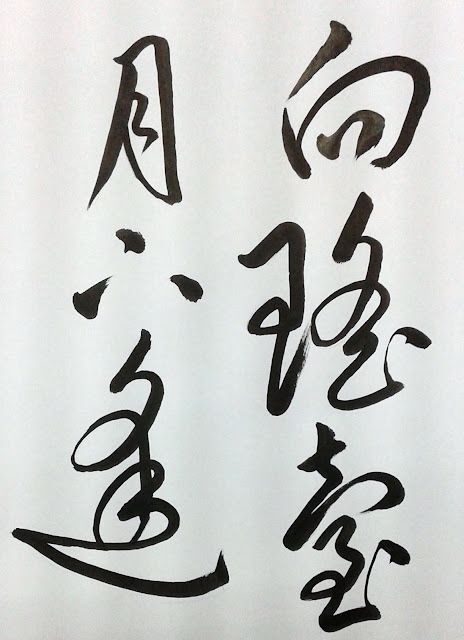 向瑤臺
月下逢